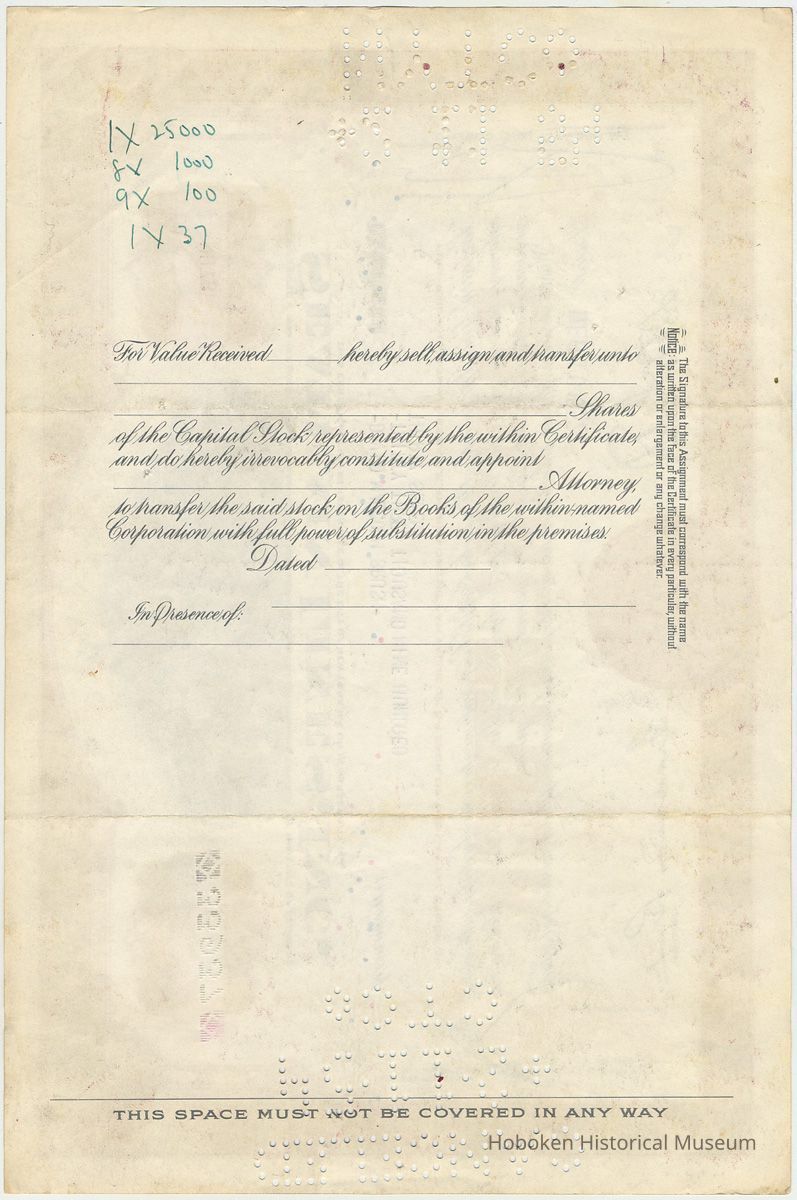 1 X 25000
8 X 1000
9 X 100
1 X 37
For Value Received hereby sell, assign and transfer unto
Shares
of the Capital Stock represented by the within Certificate,
and do hereby irrevocably constitute and appoint
Attorney,
to transfer the said stock on the Books of the within-named
Corporation with full power of substitution in the premises.
Dated
In Presence of:
Notice: The Signature to this Assignment must correspond with the name
as written upon the face of the Certificate in every particular, without
alteration or enlargement or any change whatever.
THIS SPACE MUST NOT BE COVERED IN ANY WAY
Hoboken Historical Museum